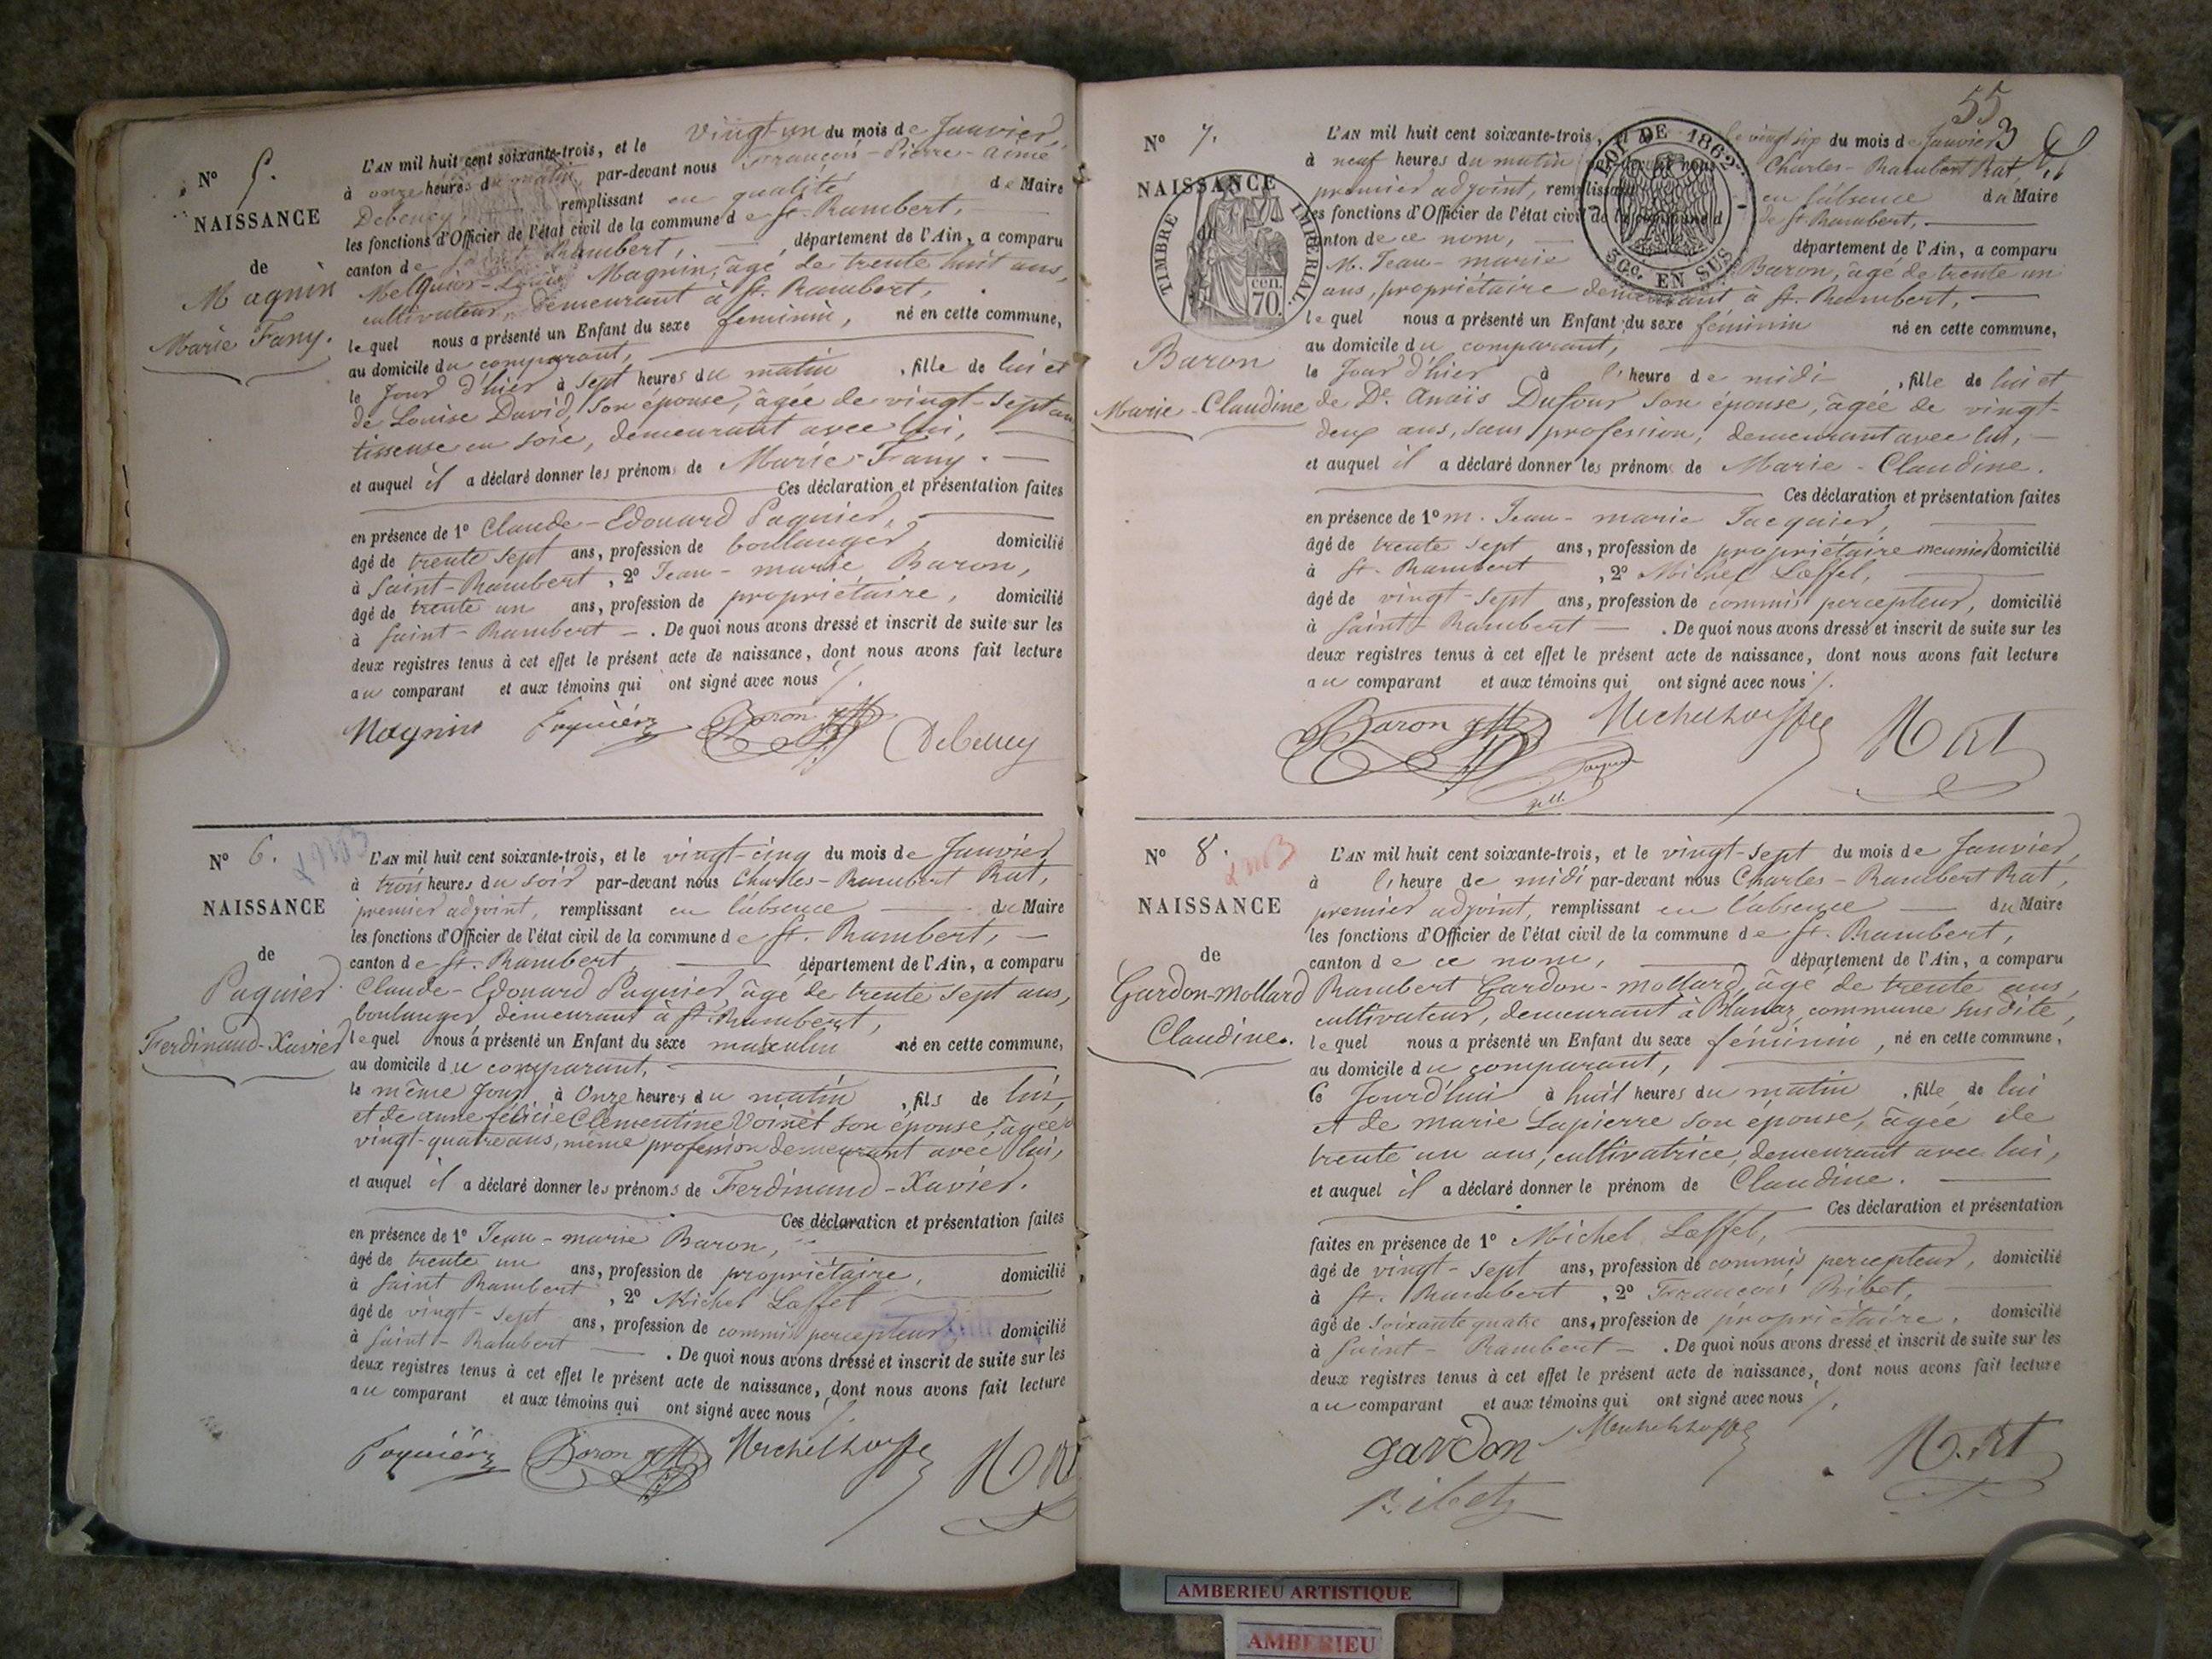 N° 5.
NAISSANCE
de
Magnin
Marie Fany.
L'AN mil huit cent soixante-trois, et le vingt-un du mois de Janvier,
à onze heures du matin par-devant nous François-Pierre-Aimé
Debeney, remplissant en qualité de Maire
les fonctions d'Officier de l'état civil de la commune de St. Rambert,
canton de Saint Rambert, département de l'Ain, a comparu
Melquior-Louis Magnin, âgé de trente huit ans,
cultivateur, demeurant à St. Rambert,
lequel nous a présenté un Enfant du sexe feminin, né en cette commune,
au domicile du comparant,
le Jour d'hier à sept heures du matin, fille de lui et
de Louise David, son épouse, âgée de vingt-sept ans
tisseuse en soie, demeurant avec lui,
et auquel il a déclaré donner les prénoms de Marie-Fany.
Ces déclaration et présentation faites
en présence de 1° Claude-Edouard Paquier,
âgé de trente sept ans, profession de boulanger, domicilié
à Saint-Rambert, 2° Jean-marie Baron,
âgé de trente un ans, profession de propriétaire, domicilié
à Saint-Rambert. De quoi nous avons dressé et inscrit de suite sur les
deux registres tenus à cet effet le présent acte de naissance, dont nous avons fait lecture
au comparant et aux témoins qui ont signé avec nous
Magnin Paquier Baron Debeney
N° 6.
NAISSANCE
de
Paquier
Ferdinand-Xavier
L'AN mil huit cent soixante-trois, et le vingt-cinq du mois de Janvier
à trois heures du soir par-devant nous Charles-Rambert Rat,
premier adjoint, remplissant en l'absence du Maire
les fonctions d'Officier de l'état civil de la commune de St. Rambert,
canton de St. Rambert, département de l'Ain, a comparu
Claude-Edouard Paquier, âgé de trente sept ans,
boulanger, demeurant à St. Rambert,
lequel nous a présenté un Enfant du sexe masculin né en cette commune,
au domicile du comparant,
le même Jour à Onze heures du matin, fils de lui,
et de anne félicie Clementine Voinet son épouse, âgée
vingt-quatre ans, même profession demeurant avec lui,
et auquel il a déclaré donner les prénoms de Ferdinand-Xavier.
Ces déclaration et présentation faites
en présence de 1° Jean-marie Baron,
âgé de trente un ans, profession de propriétaire, domicilié
à Saint Rambert, 2° Michel Lœffel
âgé de vingt-sept ans, profession de commis percepteur, domicilié
à Saint-Rambert. De quoi nous avons dressé et inscrit de suite sur les
deux registres tenus à cet effet le présent acte de naissance, dont nous avons fait lecture
au comparant et aux témoins qui ont signé avec nous
Paquier Baron Michel Lœffel Rat
55
N° 7.
NAISSANCE
TIMBRE IMPÉRIAL.
70 cen.
LOI DE 1862
50c. EN SUS
Baron
Marie-Claudine
L'AN mil huit cent soixante-trois, le vingt six du mois de Janvier
à neuf heures du matin par-devant nous Charles-Rambert Rat,
premier adjoint, remplissant en l'absence du Maire
les fonctions d'Officier de l'état civil de la commune de St. Rambert,
canton de ce nom, département de l'Ain, a comparu
M. Jean-marie Baron, âgé de trente un
ans, propriétaire demeurant à St. Rambert,
lequel nous a présenté un Enfant du sexe féminin né en cette commune,
au domicile du comparant,
le Jour d'hier à l'heure de midi, fille de lui et
de De. Anaïs Dufour son épouse, âgée de vingt-
deux ans, sans profession, demeurant avec lui,
et auquel il a déclaré donner les prénoms de Marie-Claudine.
Ces déclaration et présentation faites
en présence de 1° m. Jean-marie Jacquier,
âgé de trente sept ans, profession de propriétaire meunier domicilié
à St. Rambert, 2° Michel Lœffel,
âgé de vingt-sept ans, profession de commis percepteur, domicilié
à Saint-Rambert. De quoi nous avons dressé et inscrit de suite sur les
deux registres tenus à cet effet le présent acte de naissance, dont nous avons fait lecture
au comparant et aux témoins qui ont signé avec nous
Baron Michel Lœffel Rat
N° 8.
NAISSANCE
de
Gardon-Mollard
Claudine.
L'AN mil huit cent soixante-trois, et le vingt-sept du mois de Janvier,
à l'heure de midi par-devant nous Charles-Rambert Rat,
premier adjoint, remplissant en l'absence du Maire
les fonctions d'Officier de l'état civil de la commune de St. Rambert,
canton de ce nom, département de l'Ain, a comparu
Rambert Gardon-mollard, âgé de trente ans,
cultivateur, demeurant à Blanaz commune susdite,
lequel nous a présenté un Enfant du sexe féminin, né en cette commune,
au domicile du comparant,
ce Jourd'hui à huit heures du matin, fille de lui
et de marie Lapierre son épouse, âgée de
trente un ans, cultivatrice, demeurant avec lui,
et auquel il a déclaré donner le prénom de Claudine.
Ces déclaration et présentation
faites en présence de 1° Michel Lœffel,
âgé de vingt-sept ans, profession de commis percepteur, domicilié
à St. Rambert, 2° François Ribet,
âgé de soixante quatre ans, profession de propriétaire, domicilié
à Saint-Rambert. De quoi nous avons dressé et inscrit de suite sur les
deux registres tenus à cet effet le présent acte de naissance, dont nous avons fait lecture
au comparant et aux témoins qui ont signé avec nous
gardon Michel Lœffel Rat
Ribet
AMBERIEU ARTISTIQUE
AMBERIEU